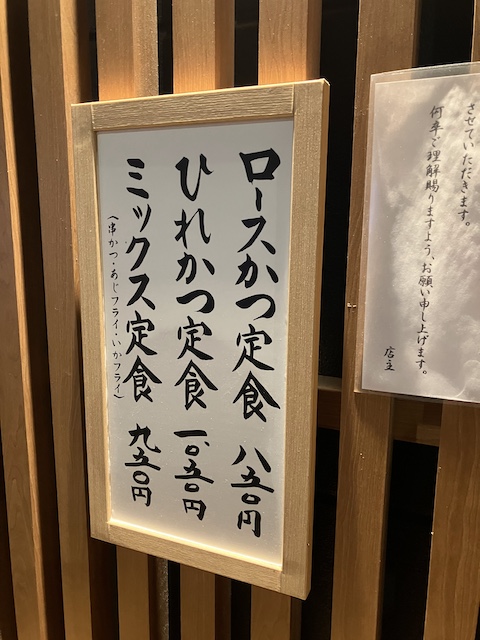 させていただきます。
何卒ご理解賜りますよう、お願い申し上げます。
店主
ロースかつ定食 八五〇円
ひれかつ定食 一、〇五〇円
ミックス定食 九五〇円
（串かつ・あじフライ・いかフライ）